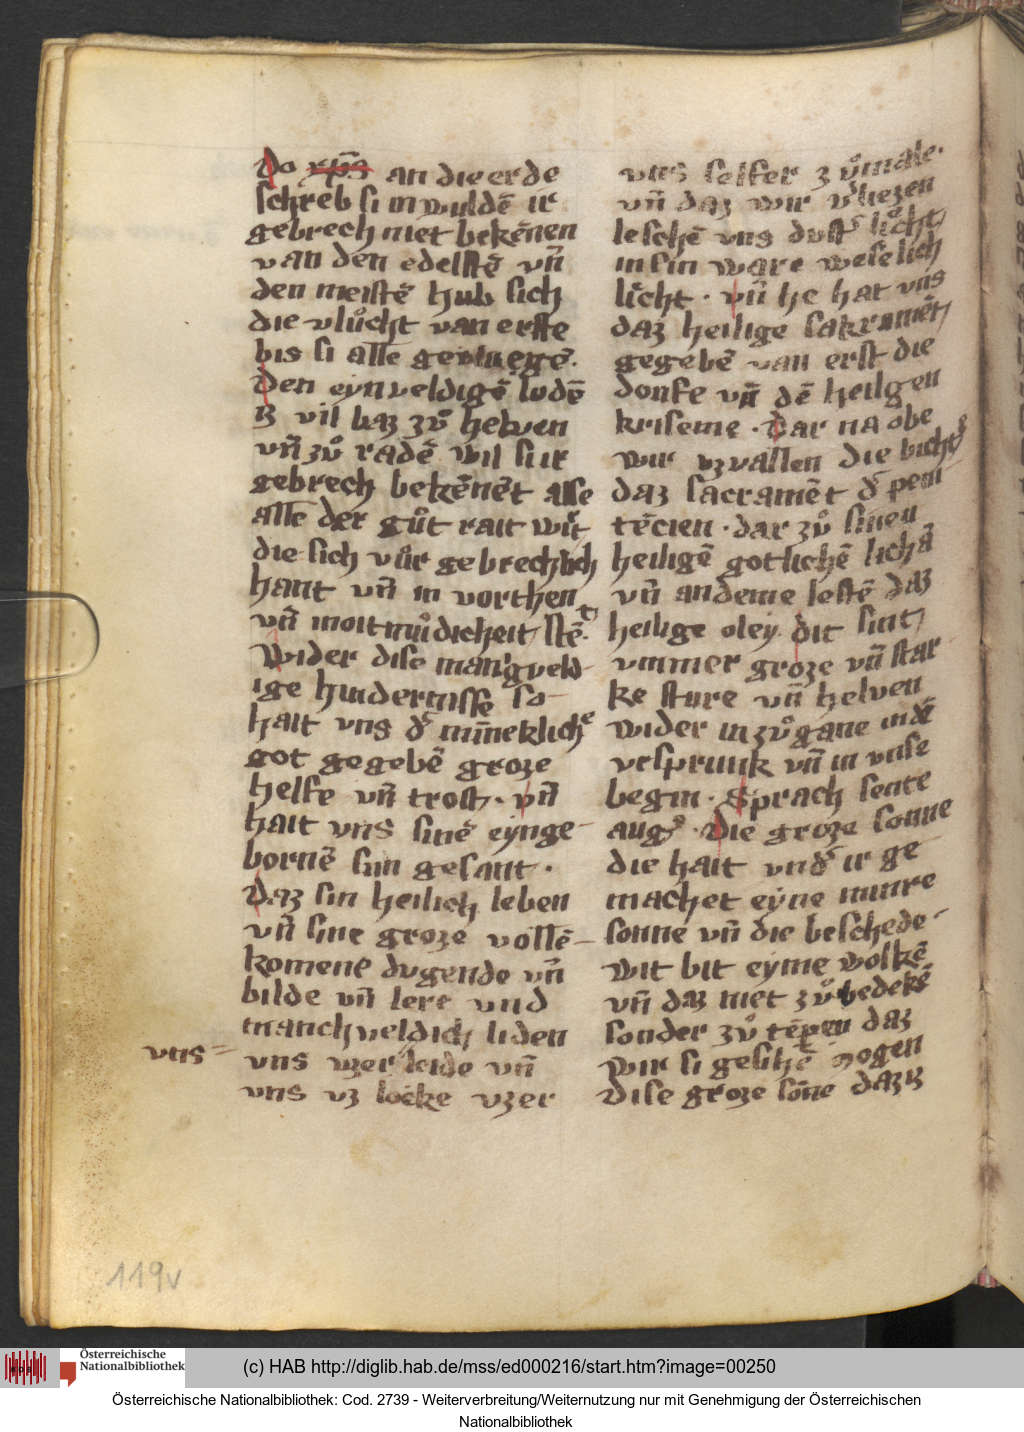 Do xp̄s an die erde
schreb si in wuldē ir
gebrech niet bekēnen
van den edelstē vn̄
den meistē hub sich
die vluͦcht van erste
bis si alle
Den eynveldigē ludē
iz vil baz zuͦ helven
vn̄ zuͦ radē wil si ir
gebrech bekēnēt alle
alle der guͦt rait wirt
die sich vur gebrechlich
hant vn̄ in vorthen
vn̄ in oitmuͦdicheit stēt
Wider dise manigveld
ige hindernisse so
hait vns dˀ min̄eklichē
got gegebē groze
helfe vn̄ trost · vn̄
hait vns sinē eynge
bornē sun gesant ·
Daz sin heilich leben
vn̄ sine groze vollē
komene dugende vn̄
bilde vn̄ lere vnd
manchveldich liden
vns =
vns vzer leide vn̄
vns vz locke vzer
vns selfer zuͦmale ·
vn̄ daz wir vˀliezen
leschē vns dustˀ liͦcht
in sin ware weselich
licht · vn̄ he hat vns
daz heilige sakramēt
gegebē van erst die
donfe vn̄ dē heilgen
kriseme · Dar na obe
wir vzvallen die bichtˀ
daz sacramēt dˀ peni
tēcien · dar zuͦ sinen
heiligē gotlichē lichā
vn̄ an deme lestē daz
heilige oley · dit sint
vmmer groze vn̄ star
ke sture vn̄ helven
wider in zuͦ gane in dē
vrsprunk vn̄ in vnse
begin · Sprach sente
augˀ · Die groze sonne
die hait vndˀ ir ge
machet eyne minre
sonne vn̄ die beschede
wit bit eyme wolkē
vn̄ daz niet zuͦ bedekē
sonder zuͦ tēpen daz
wir si gesihē mogen
Dise groze son̄e daz iz
119v
Österreichische
Nationalbibliothek
(c) HAB http://diglib.hab.de/mss/ed000216/start.htm?image=00250
Österreichische Nationalbibliothek: Cod. 2739 - Weiterverbreitung/Weiternutzung nur mit Genehmigung der Österreichischen
Nationalbibliothek